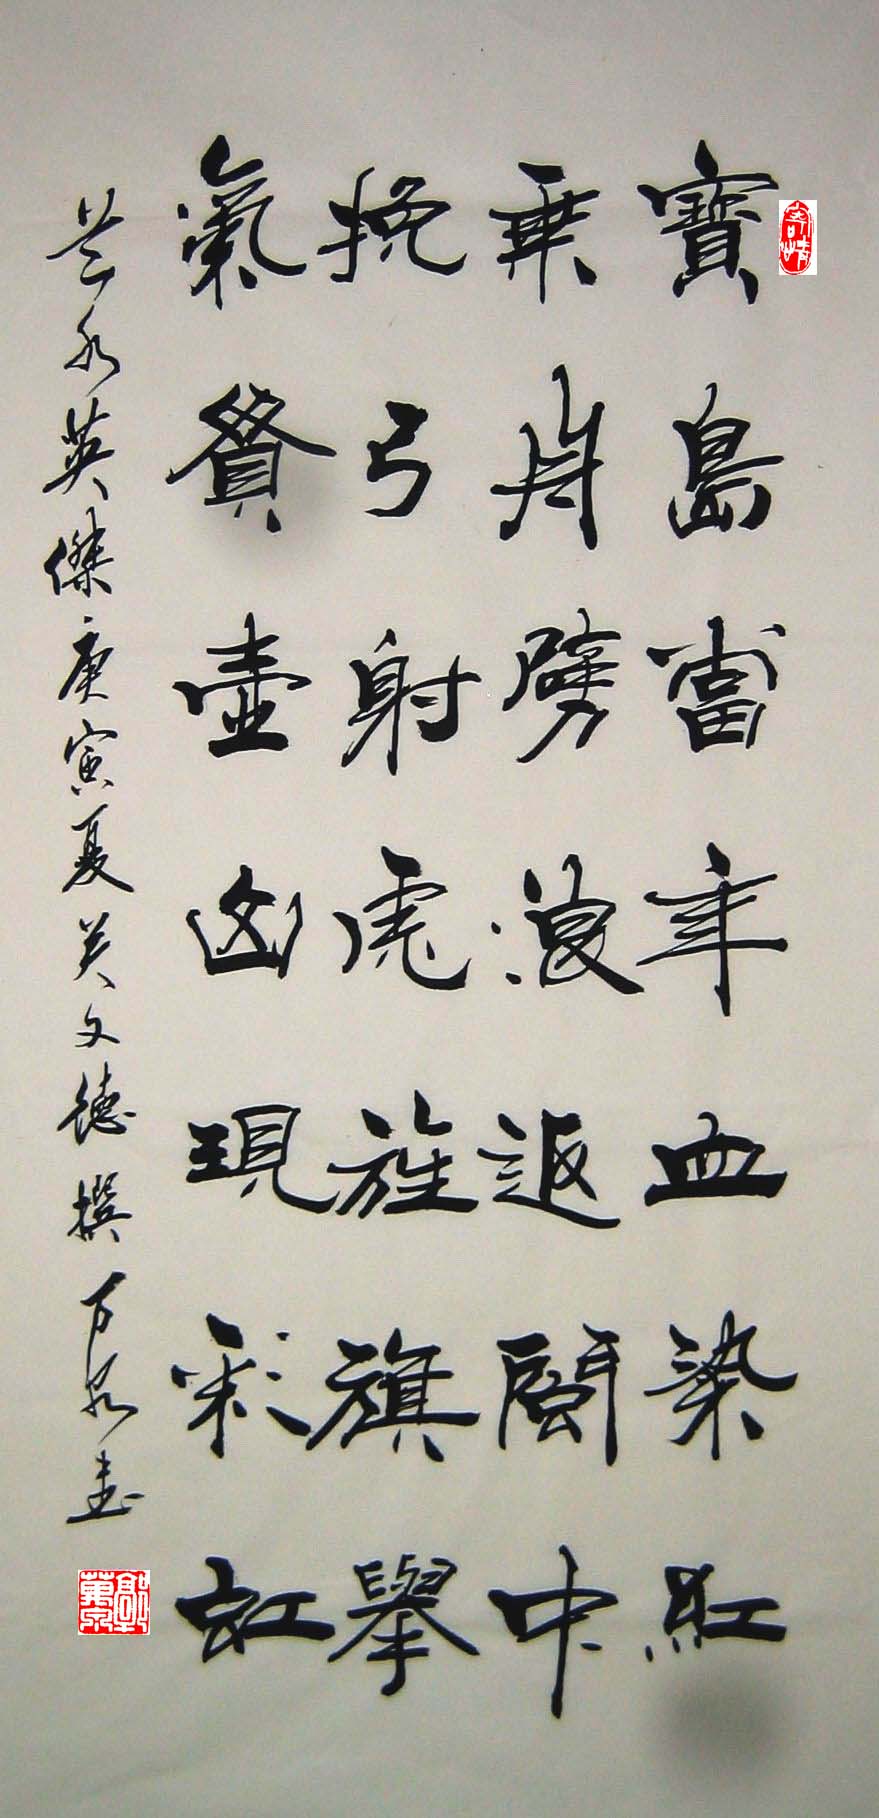 寶島當年血染紅
乘舟劈浪返閩中
挽弓射虎旌旗舉
氣貫壺現彩虹
英傑庚寅夏吳文德撰万泉書